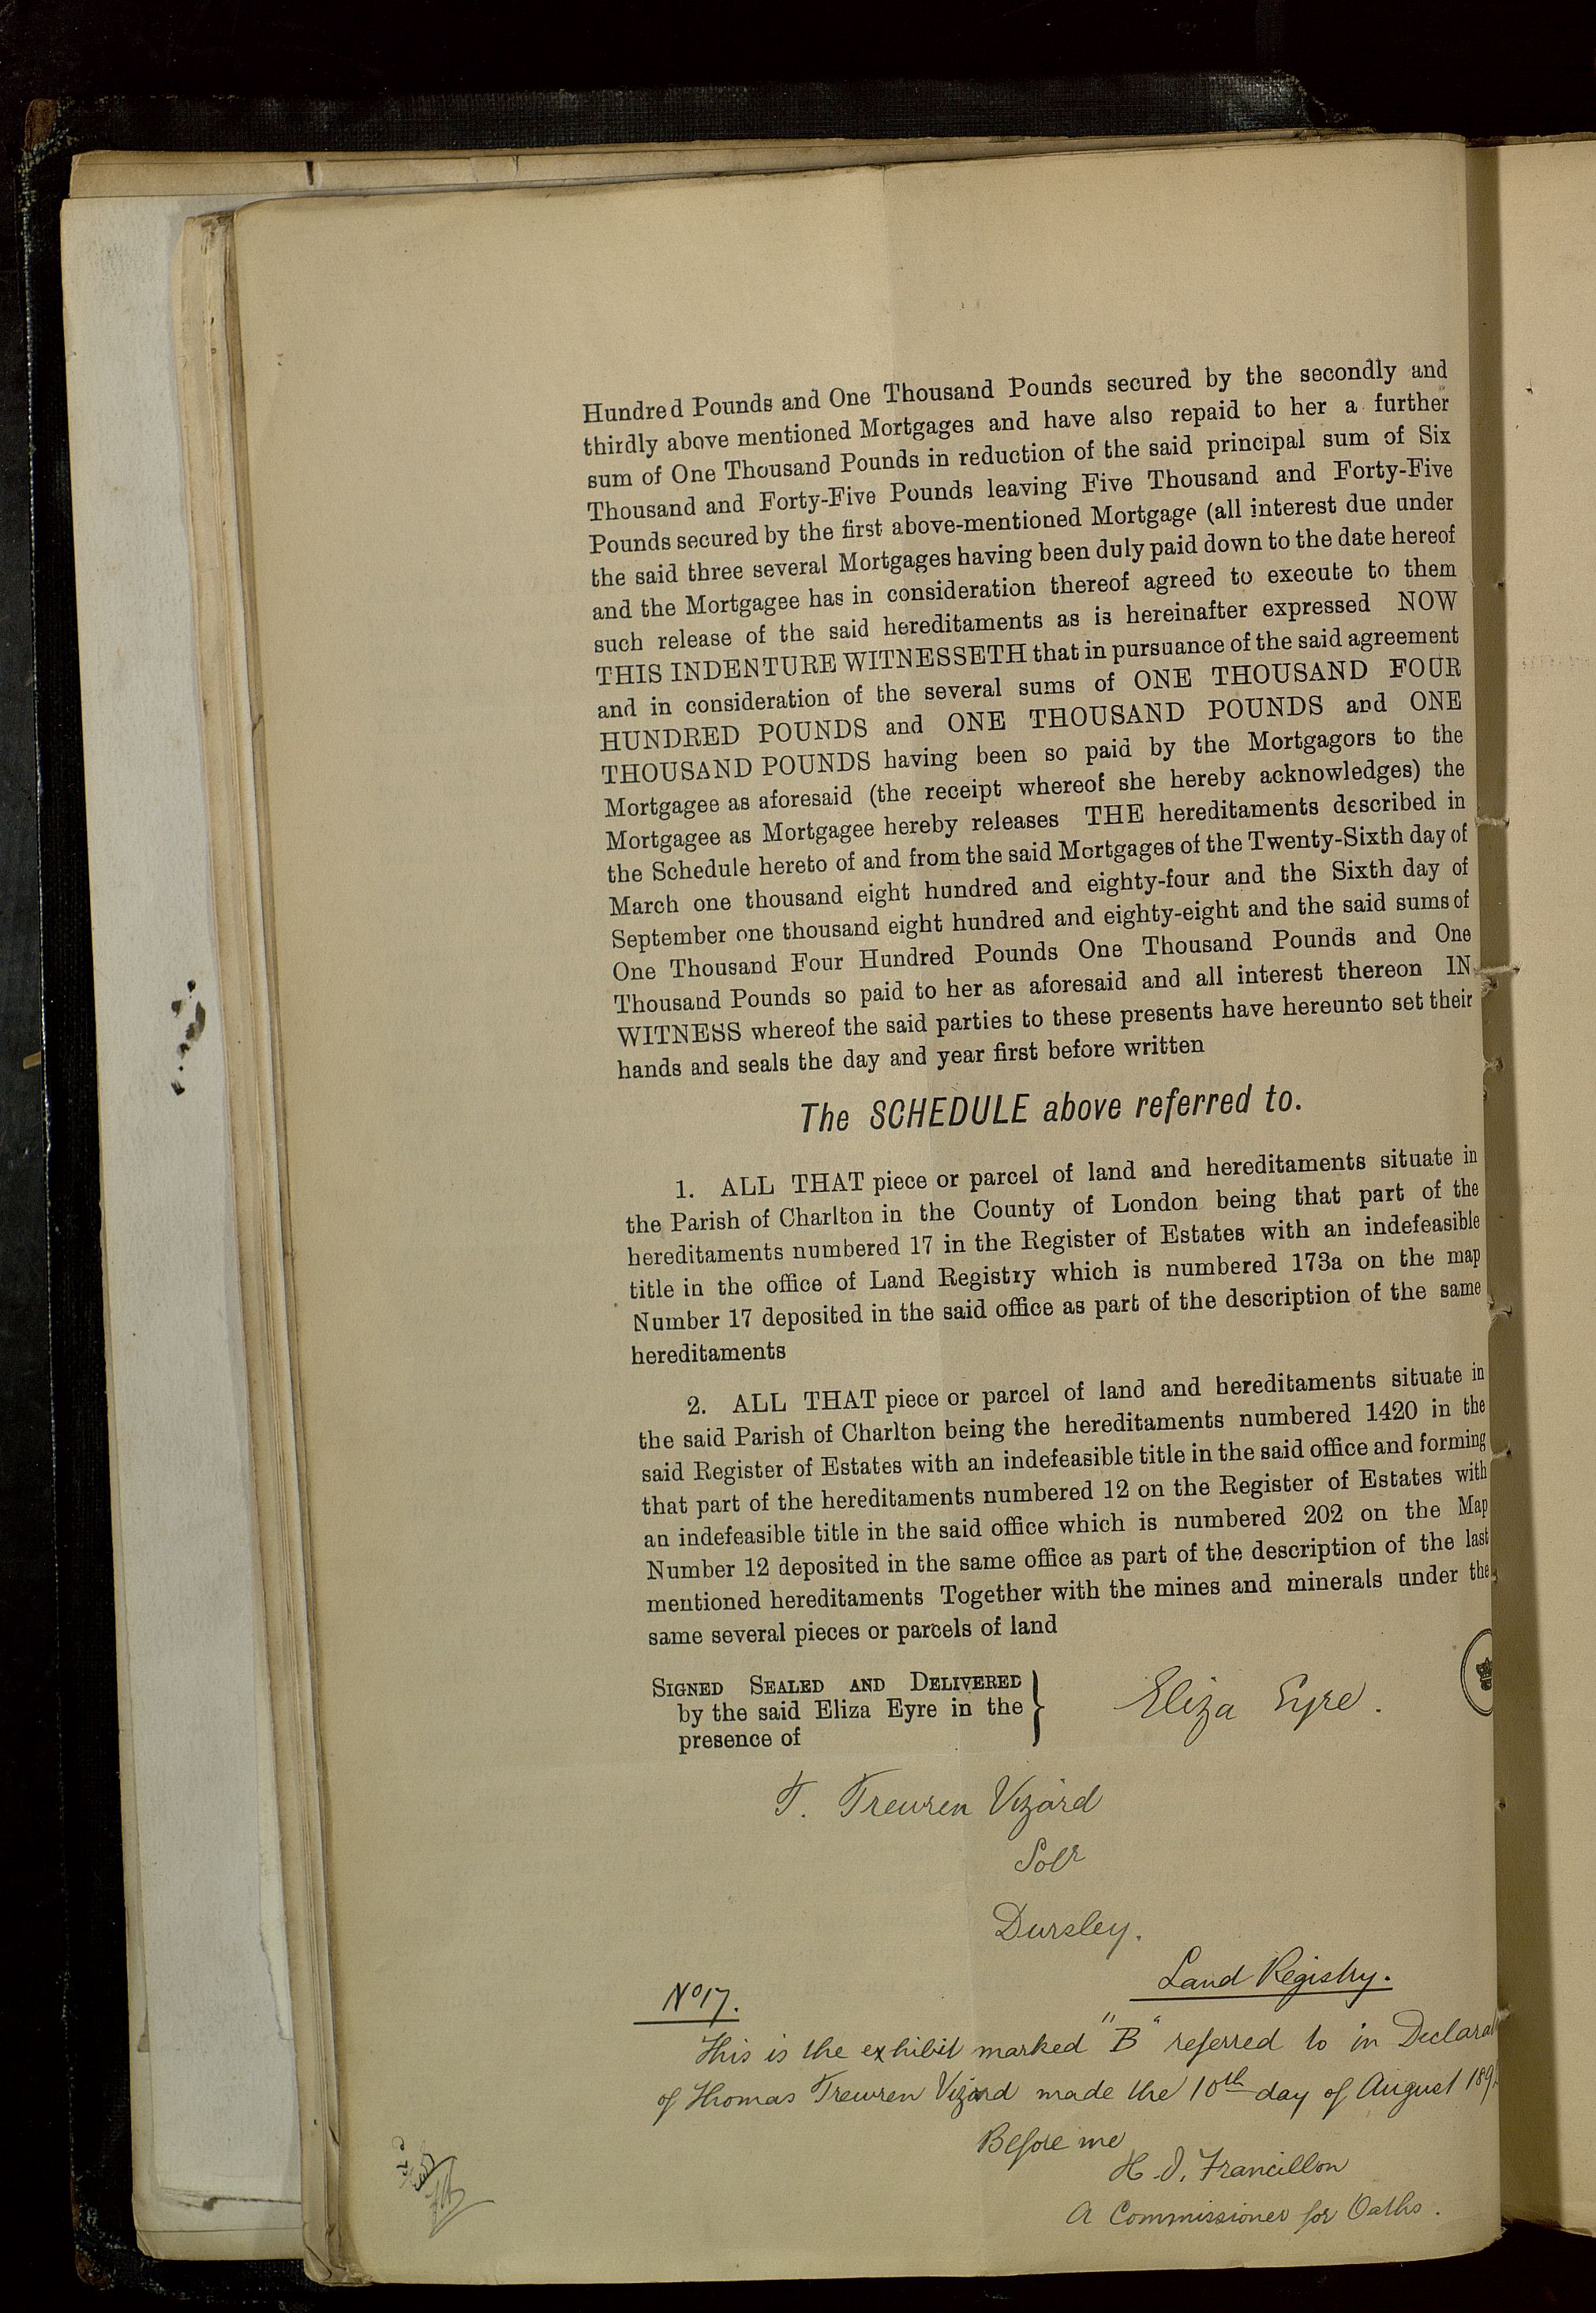 Hundred Pounds and One Thousand Pounds secured by the secondly and
thirdly above mentioned Mortgages and have also repaid to her a further
sum of One Thousand Pounds in reduction of the said principal sum of Six
Thousand and Forty-Five Pounds leaving Five Thousand and Forty-Five
Pounds secured by the first above-mentioned Mortgage (all interest due under
the said three several Mortgages having been duly paid down to the date hereof
and the Mortgagee has in consideration thereof agreed to execute to them
such release of the said hereditaments as is hereinafter expressed NOW
THIS INDENTURE WITNESSETH that in pursuance of the said agreement
and in consideration of the several sums of ONE THOUSAND FOUR
HUNDRED POUNDS and ONE THOUSAND POUNDS and ONE
THOUSAND POUNDS having been so paid by the Mortgagors to the
Mortgagee as aforesaid (the receipt whereof she hereby acknowledges) the
Mortgagee as Mortgagee hereby releases THE hereditaments described in
the Schedule hereto of and from the said Mortgages of the Twenty-Sixth day of
March one thousand eight hundred and eighty-four and the Sixth day of
September one thousand eight hundred and eighty-eight and the said sums of
One Thousand Four Hundred Pounds One Thousand Pounds and One
Thousand Pounds so paid to her as aforesaid and all interest thereon IN
WITNESS whereof the said parties to these presents have hereunto set their
hands and seals the day and year first before written
The SCHEDULE above referred to.
1. ALL THAT piece or parcel of land and hereditaments situate in
the Parish of Charlton in the County of London being that part of the
hereditaments numbered 17 in the Register of Estates with an indefeasible
title in the office of Land Registry which is numbered 173a on the map
Number 17 deposited in the said office as part of the description of the same
hereditaments
2. ALL THAT piece or parcel of land and hereditaments situate in
the said Parish of Charlton being the hereditaments numbered 1420 in the
said Register of Estates with an indefeasible title in the said office and forming
that part of the hereditaments numbered 12 on the Register of Estates with
an indefeasible title in the said office which is numbered 202 on the Map
Number 12 deposited in the same office as part of the description of the last
mentioned hereditaments Together with the mines and minerals under the
same several pieces or parcels of land
SIGNED SEALED AND DELIVERED
by the said Eliza Eyre in the
presence of
Eliza Eyre.
T. Trewren Vizard
Solr
Dursley.
Land Registry.
No 17.
This is the exhibit marked "B" referred to in Declarat
of Thomas Trewren Vizard made the 10th day of August 189
Before me
H. D. Francillon
A Commissioner for Oaths.